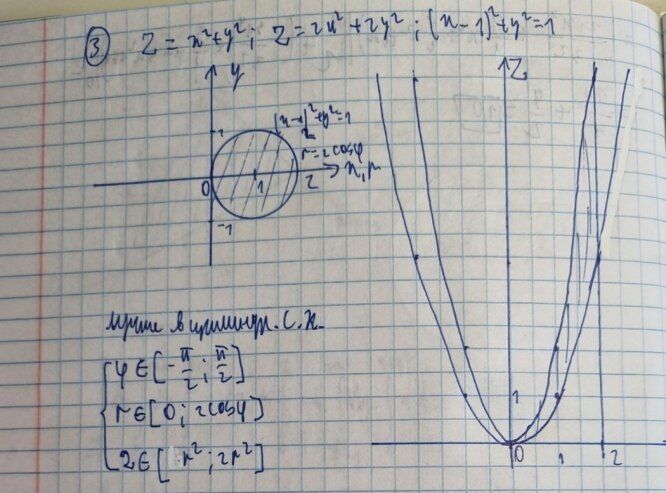 ③ Z = x²+y²; Z = 2x²+2y²; (x-1)²+y²=1
y
1
(x-1)²+y²=1
r=2cosφ
0 1 2 x, r
-1
Z
1
0 1 2
Лучше в цилиндр. С.К.
φ∈[-π/2; π/2]
r∈[0; 2cosφ]
z∈[r²; 2r²]